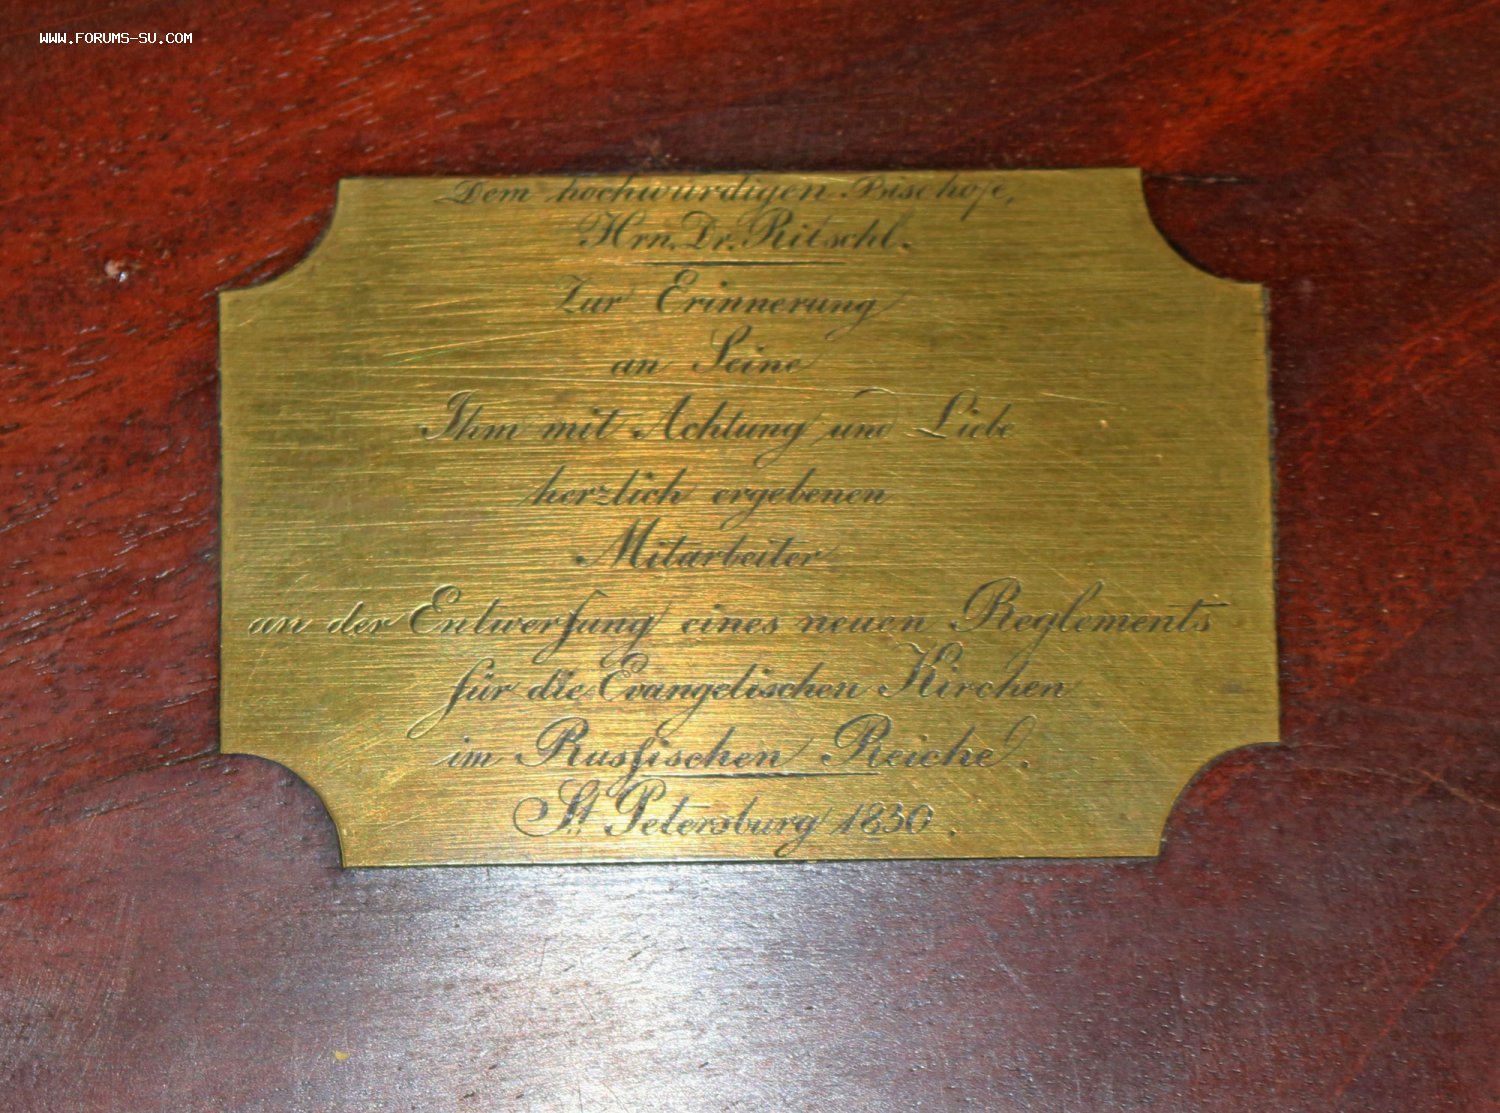 WWW.FORUMS-SU.COM
Dem hochwürdigen Bischofe,
Hrn. Dr. Ritschl.
Zur Erinnerung
an Seine
Ihm mit Achtung und Liebe
herzlich ergebenen
Mitarbeiter
an der Entwerfung eines neuen Reglements
für die Evangelischen Kirchen
im Rusſischen Reiche.
St. Petersburg 1830.